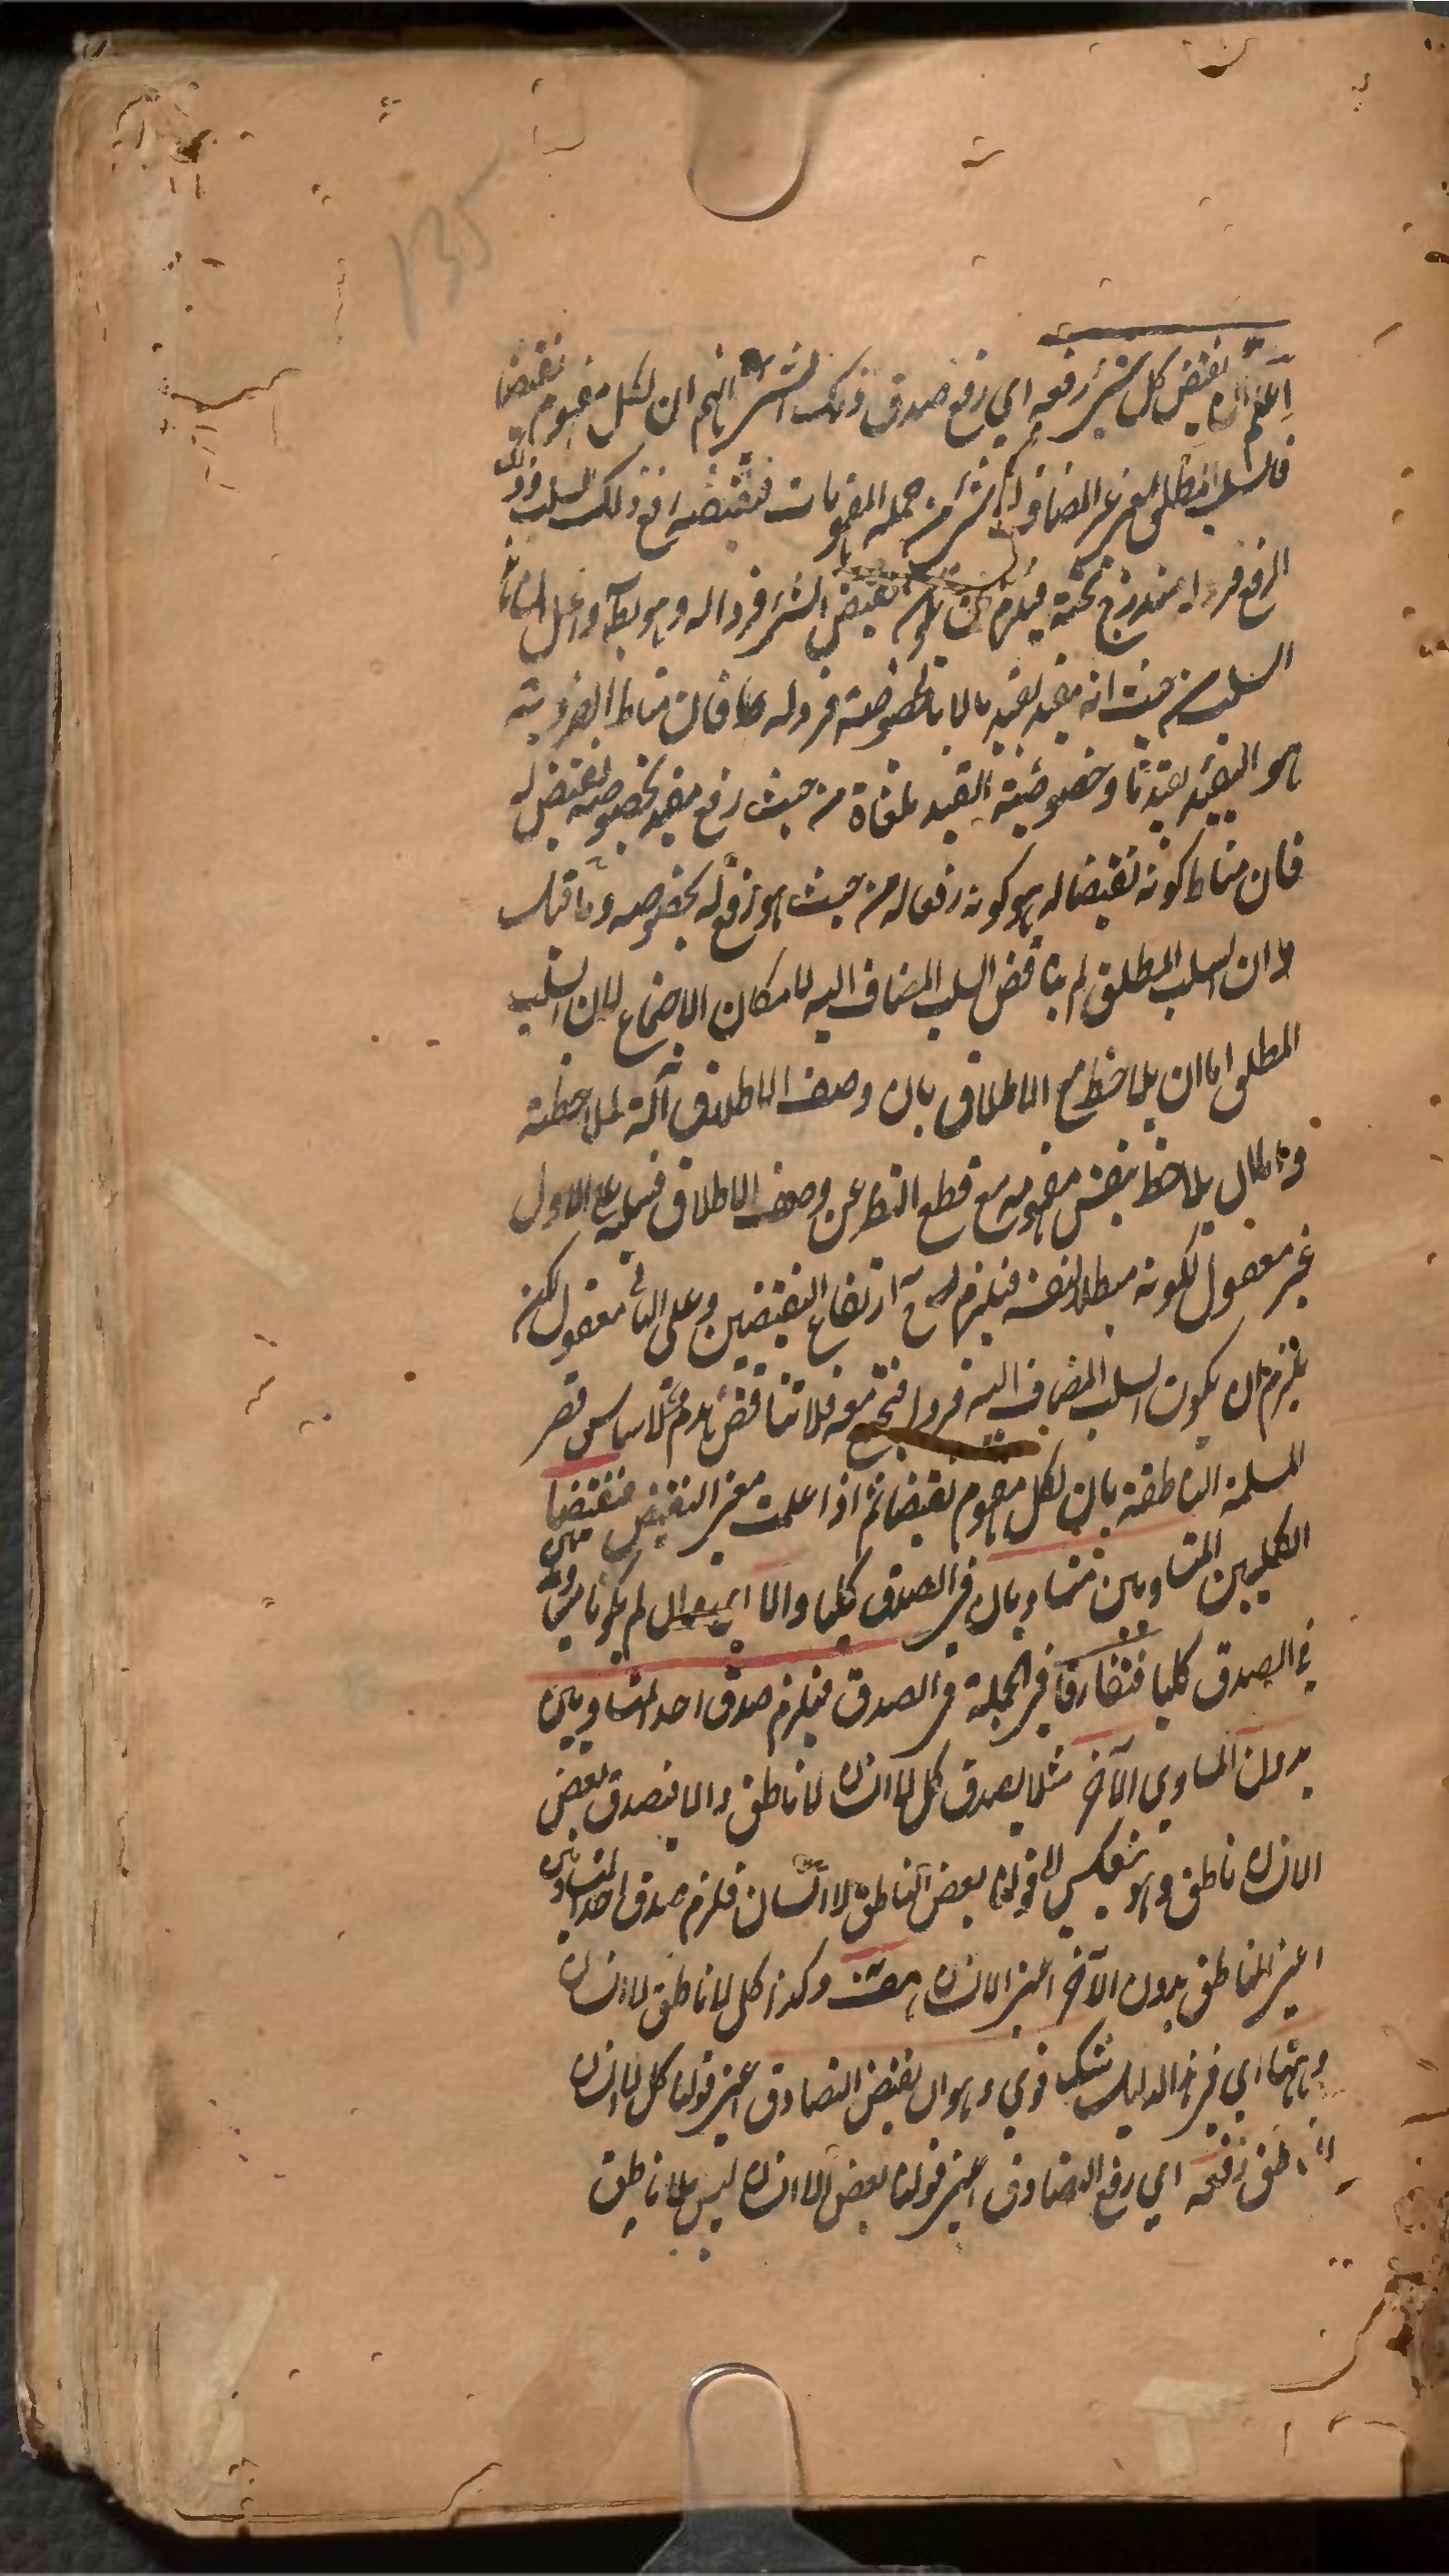 135
اعلم ان نقيض كل شيء رفعه اي رفع صدق ذلك الشيء انهم ان لكل مفهوم نقيضا
فالسلب المطلق الغير المضاف الى شيء من جملة المفهومات فنقيضه رفع ذلك السلب وذلك
الرفع فرد له مندرج تحته فيلزم كون نقيض الشيء فردا له وهو بط وحل ان
السلب من حيث انه مقيد بقيد ما لا بالخصوصية فرد له فان مناط الفردية
هو التقييد بقيد ما وخصوصية القيد ملغاة من حيث رفع مقيد بخصوصه نقيض له
فان مناط كونه نقيضا له هو كونه رفعا له من حيث هو رفع له بخصوصه وما قيل
ان السلب المطلق لم يناقض السلب المضاف اليه لامكان الاجتماع لان السلب
المطلق اما ان يلاحظ مع الاطلاق بان وصف الاطلاق آلة لملاحظته
واما ان يلاحظ بنفس مفهومه مع قطع النظر عن وصف الاطلاق فسلبه على الاول
غير معقول لكونه مبطلا لنفسه فيلزم ح ارتفاع النقيضين وعلى الثاني معقول لكنه
يلزم ان يكون السلب المضاف اليه فردا فيجتمع معه فلا تناقض يلزم اساس قصر
المسلمة الناطقة بان لكل مفهوم نقيضا ثم اذا علمت معنى النقيض فنقيضا
الكليين المتساويين متساويان في الصدق كليا والا اي وان لم يكونا متساويين
في الصدق كليا فتفارقا في الجملة في الصدق فيلزم صدق احد المتساويين
بدون المساوي الآخر مثلا يصدق كل لا انسان لا ناطق والا فيصدق بعض
الانسان ناطق وهو ينعكس الى قولنا بعض الناطق لا انسان فلزم صدق احد المتساويين
اعني الناطق بدون الآخر اعني الانسان هف وكذا كل لا ناطق لا انسان
وههنا اي في هذا الدليل شك قوي وهو ان نقيض التصادق اعني قولنا كل لا انسان
لا ناطق رفعه اي رفع التصادق اعني قولنا بعض الا انسان ليس بلا ناطق